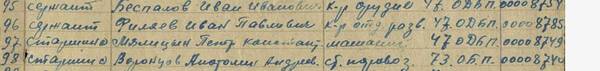 95 сержант Беспалов Иван Иванович к-р орудия 47.ОДБП. 00008754
96 сержант Филяев Иван Павлович к-р отд. разв. 47.ОДБП. 00008785
97 старшина Пётр Констант. машинис. 47 ОДБП. 00008749
98 старшина Воронцов Анатолий Андрев. ст. паровоз. 73.ОБП.